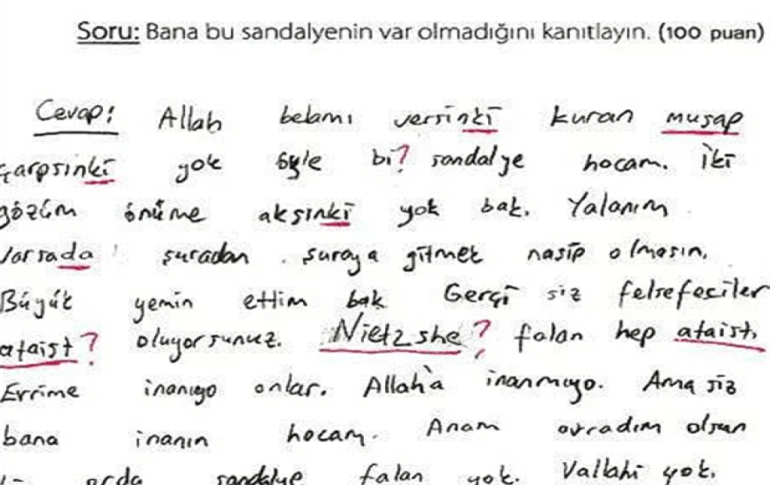 Soru: Bana bu sandalyenin var olmadığını kanıtlayın. (100 puan)
Cevap: Allah belamı versinki kuran muşap
çarpsınki yok öyle bi? sandalye hocam. İki
gözüm önüme aksınki yok bak. Yalanım
varsada şuradan şuraya gitmek nasip olmasın.
Büyük yemin ettim bak Gerçi siz felsefeciler
ataist? oluyorsunuz. Nietzshe? falan hep ataist.
Evrime inanıyo onlar. Allah'a inanmıyo. Ama siz
bana inanın hocam. Anam avradım olsun
orda sandalye falan yok. Vallahi yok.